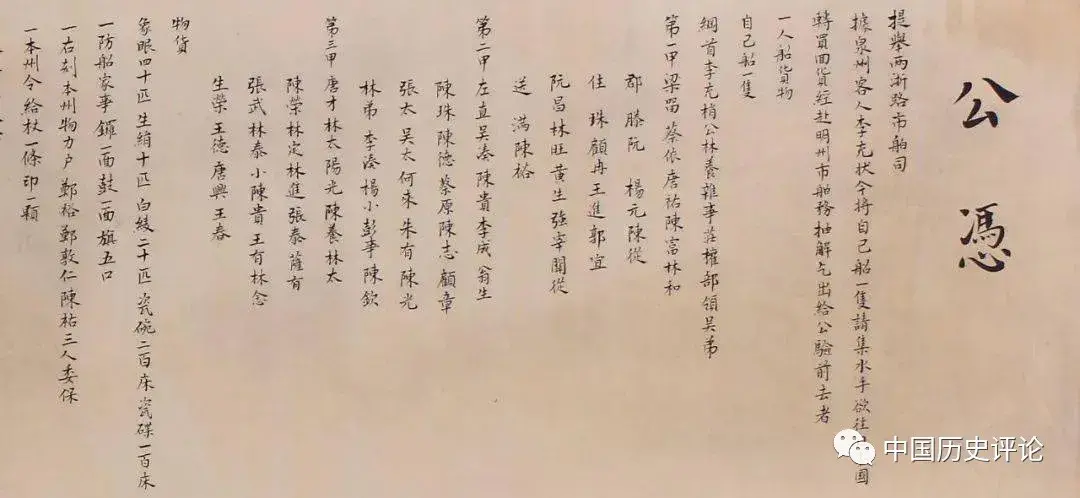 公 憑
提舉兩浙路市舶司
據泉州客人李充狀今將自己船一隻請集水手欲往 國
轉買囬貨經赴明州市舶務抽解乞出給公驗前去者
一人船貨物
自己船一隻
綱首李充梢公林養雜事莊權部領吳弟
第一甲梁留 蔡依唐祐陳富林和
郡 滕阮 楊元陳從
住 珠顧冉王進郭宜
阮昌林旺黃生強宰關從
送 滿陳裕
第二甲左直吳湊陳貴李成翁生
陳珠陳德蔡原陳志顧章
張太吳太何來朱有陳光
林弟李湊楊小彭事陳欽
第三甲唐才林太陽光陳養林太
陳榮林定林進張泰薩有
張武林泰小陳貴王有林念
生榮王德唐興王春
物貨
象眼四十匹生絹十匹白綾二十匹瓷碗二百床瓷碟一百床
一防船家事鑼一面鼓一面旗五口
一右剋本州物力户鄭裕鄭敦仁陳祐三人委保
一本州令給杖一條印一顆
中国历史评论